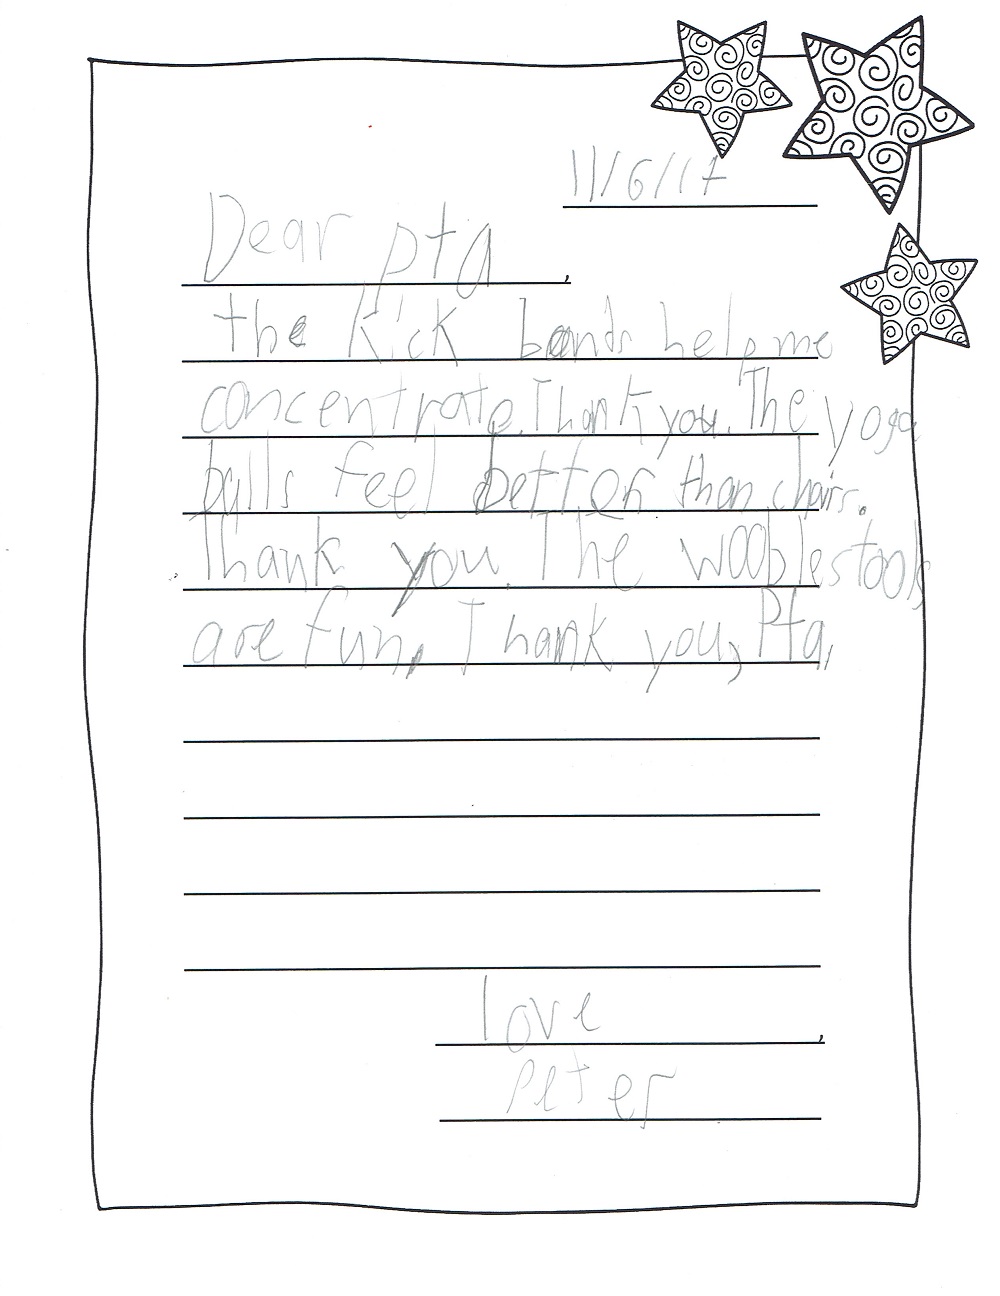 11/6/17
Dear pta,
the kick bands help me
concentrate. Thank you. The yoga
balls feel better than chairs.
Thank you. The wooble stools
are fun. Thank you, Pta,
love,
Peter